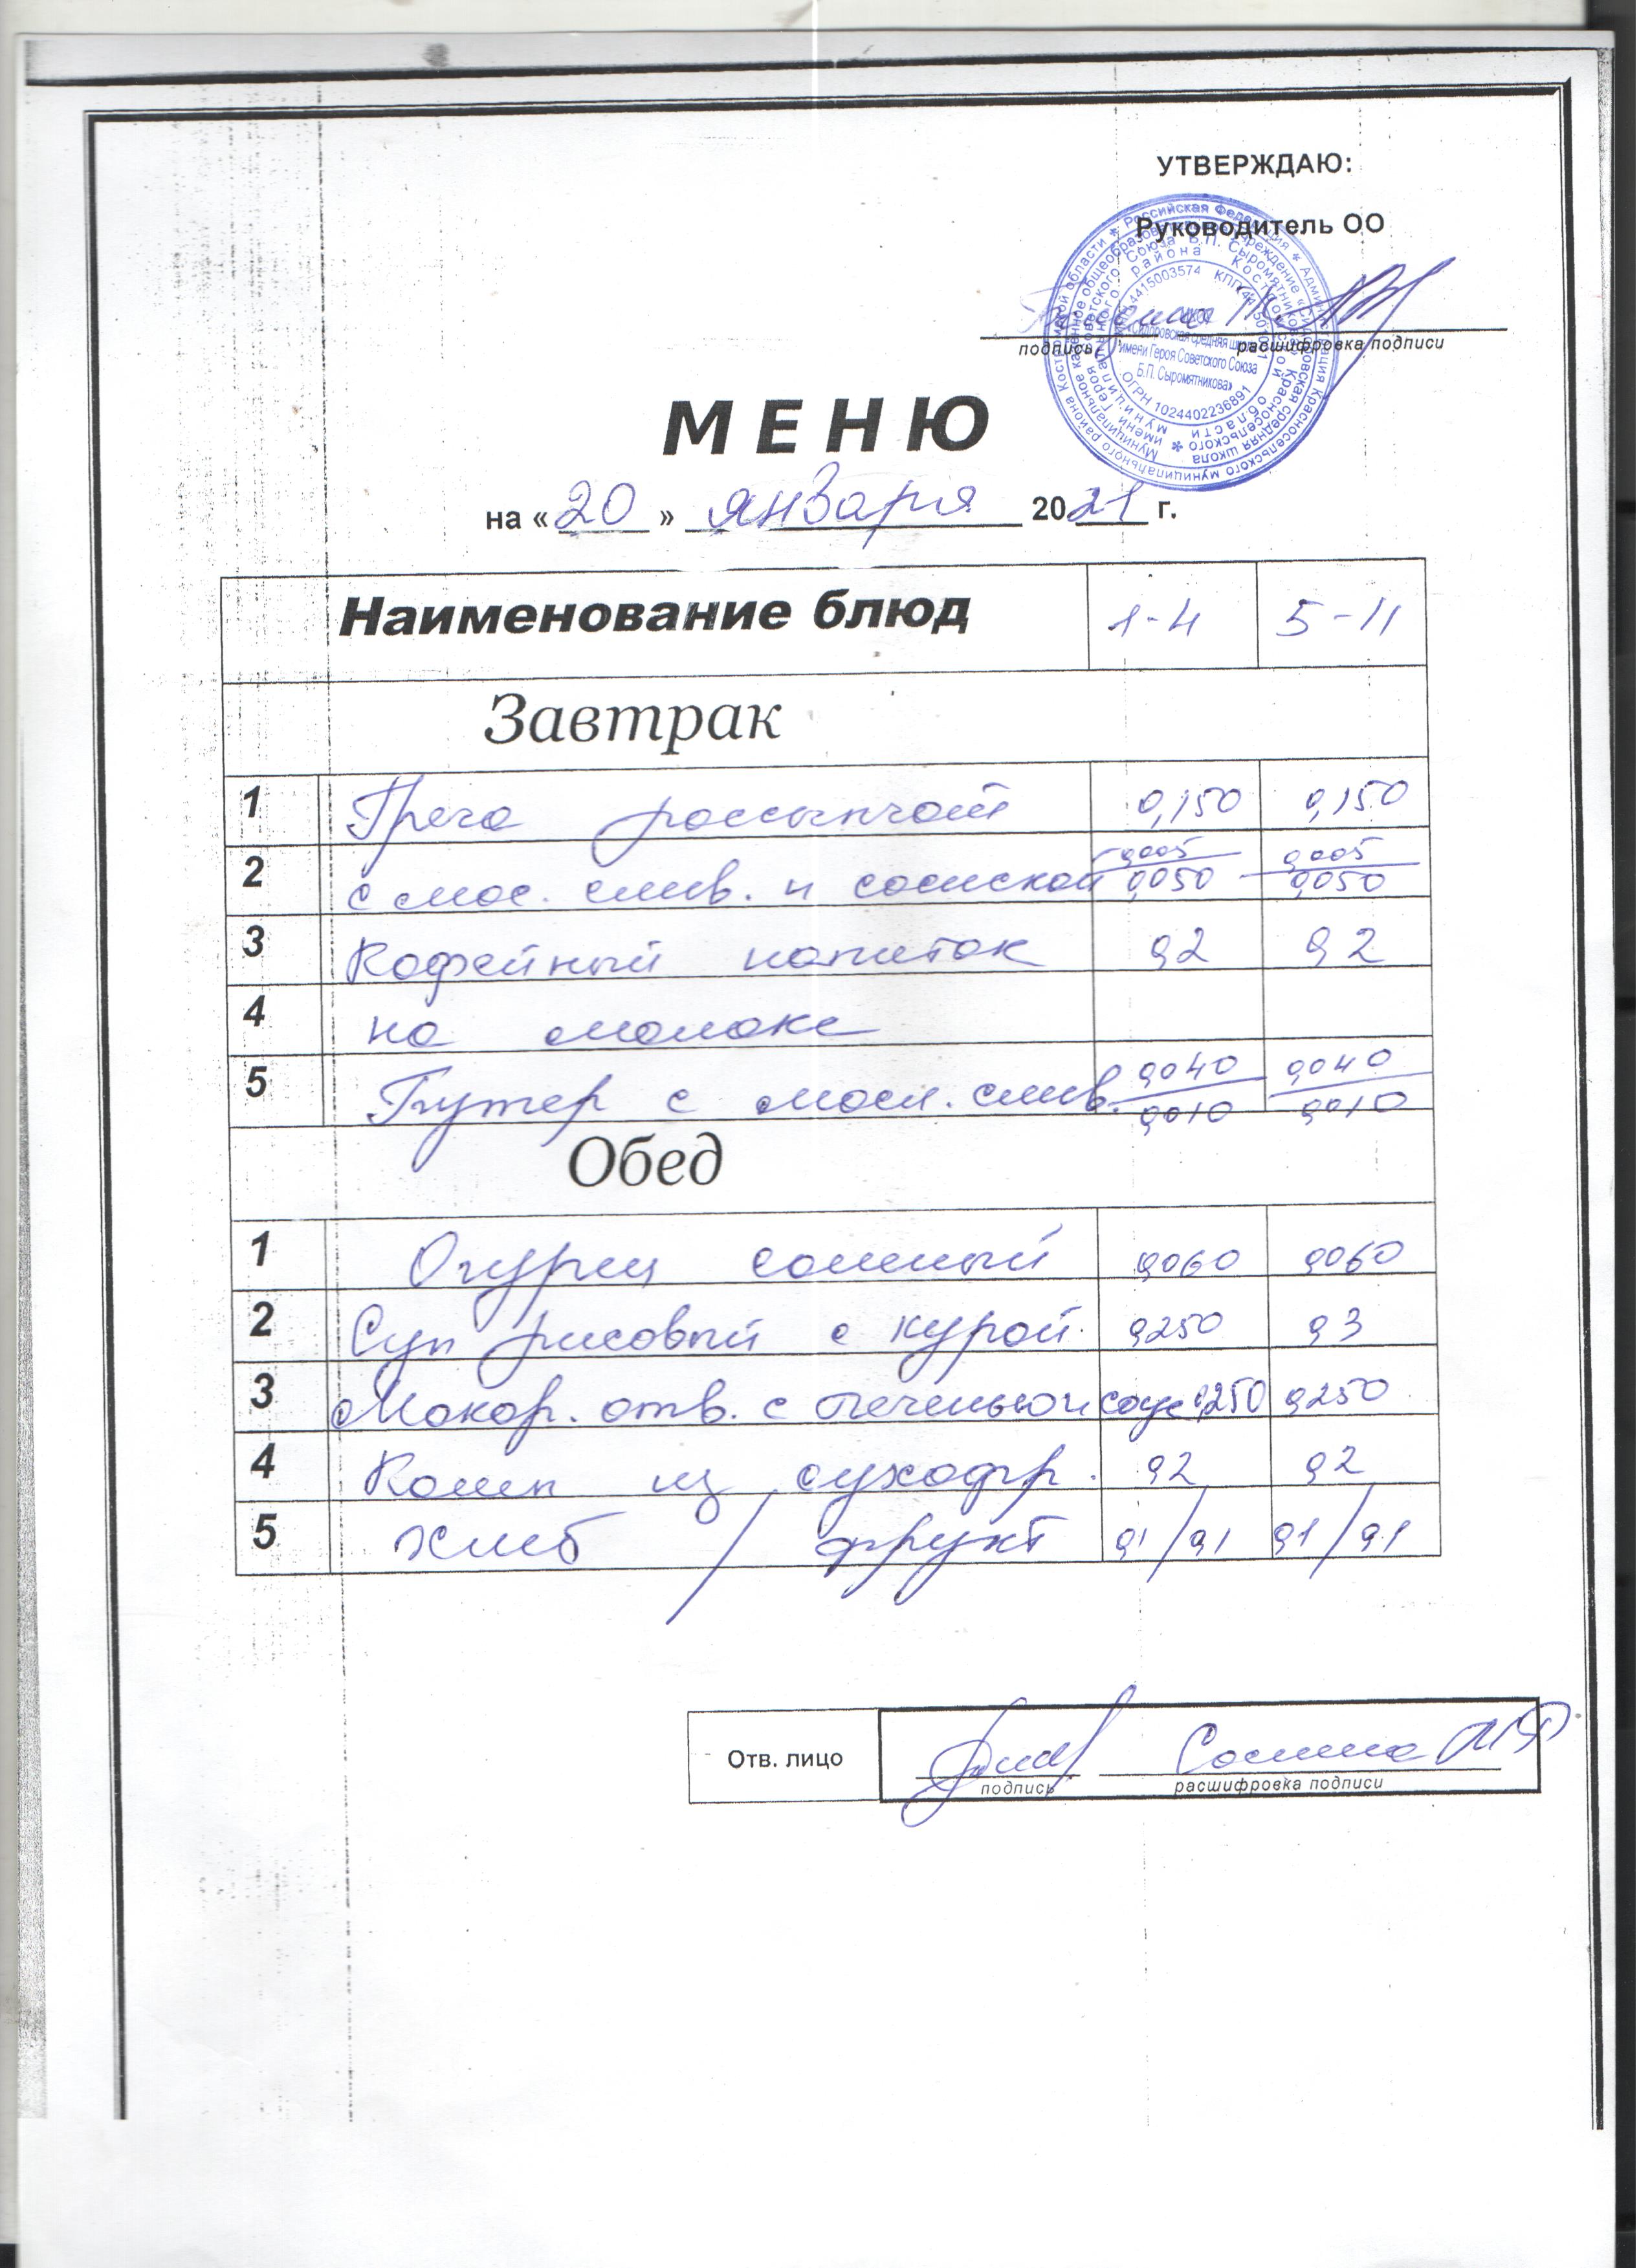 УТВЕРЖДАЮ:
Руководитель ОО
подпись расшифровка подписи
Российская Федерация * Администрация Красносельского муниципального района Костромской области *
Муниципальное казенное общеобразовательное учреждение «Сидоровская средняя школа
имени Героя Советского Союза Б.П. Сыромятникова» Красносельского
муниципального района Костромской области *
4415003574 КПП 441501001
ОГРН 1024402236891
«Сидоровская средняя школа
имени Героя Советского Союза
Б.П. Сыромятникова»
МЕНЮ
на « 20 » января 2021 г.
Наименование блюд 1-4 5-11
Завтрак
1 Греча россыпчат 0,150 0,150
2 с мас. слив. и сосиской 0,005/0,050 0,005/0,050
3 Кофейный напиток 0,2 0,2
4 на молоке
5 Бутер с масл. слив. 0,040/0,010 0,040/0,010
Обед
1 Огурец соленый 0,060 0,060
2 Суп рисовый с курой. 0,250 0,3
3 Макар. отв. с печенью и соус 0,250 0,250
4 Комп из сухофр. 0,2 0,2
5 хлеб / фрукт 0,1/0,1 0,1/0,1
Отв. лицо
подпись расшифровка подписи